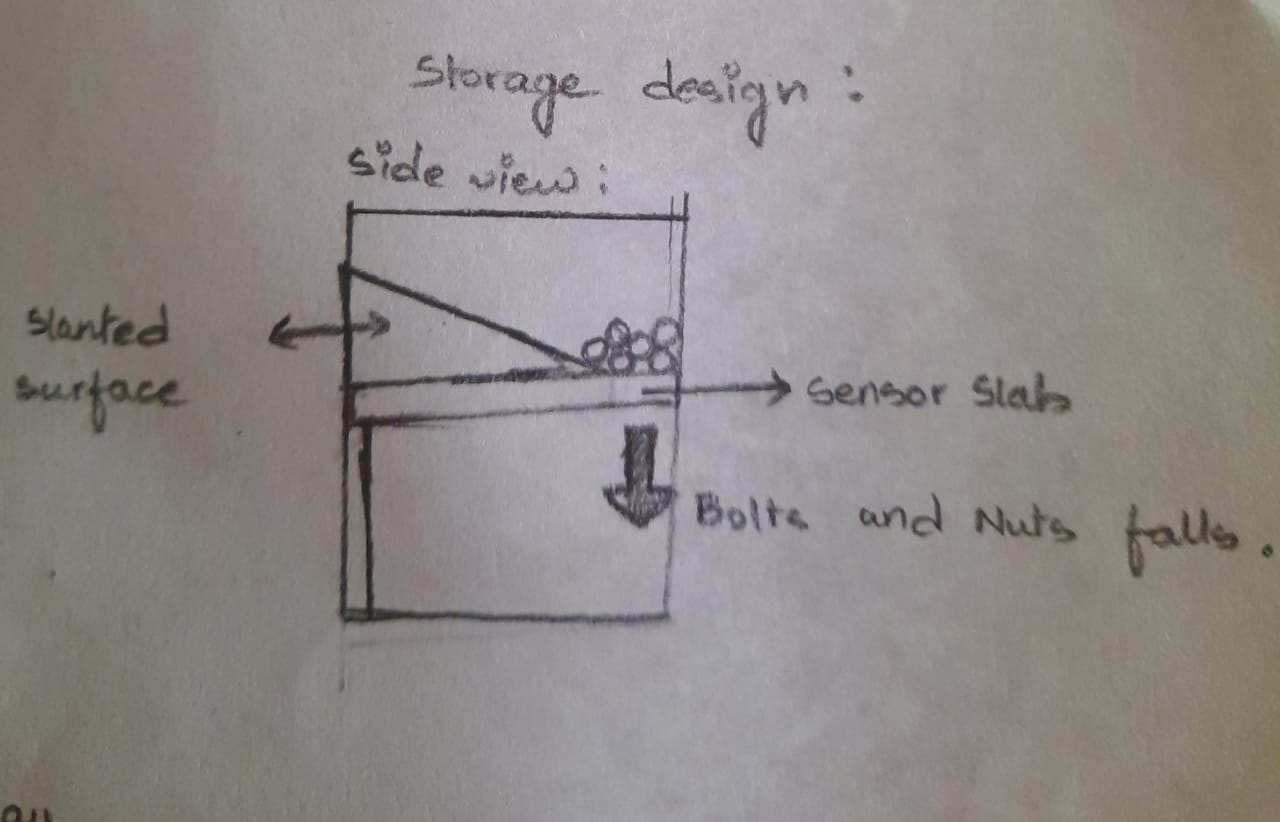 Storage design :
Side view :
Slanted
surface
Sensor Slab
Bolts and Nuts falls.